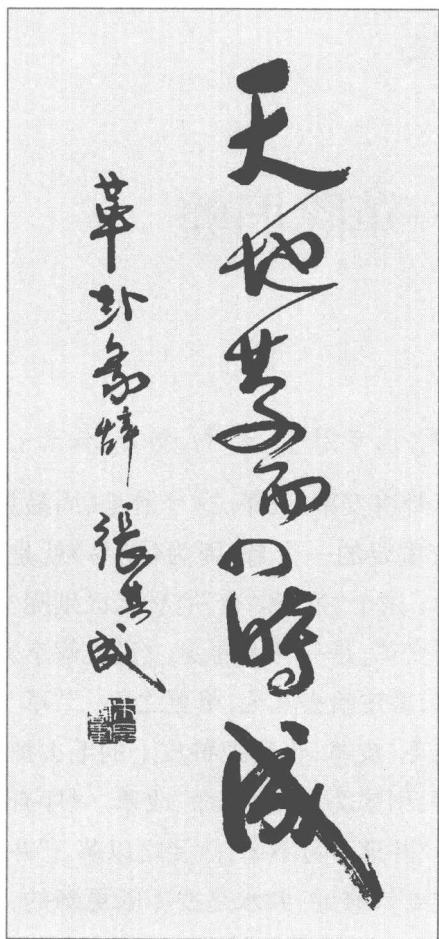 天地革而四時成
革卦彖辭 張其成